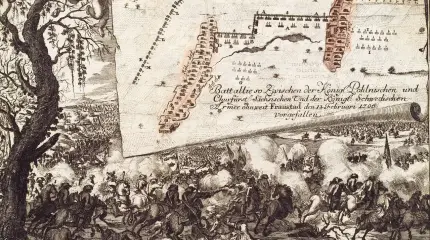 Battallie so Zwischen der Königl. Pohlnischen und
Churfürst. Sächsischen Und der Königl. Schwedischen
Armee ohnweit Fraustad den 13 Februari 1706
Vorgefallen